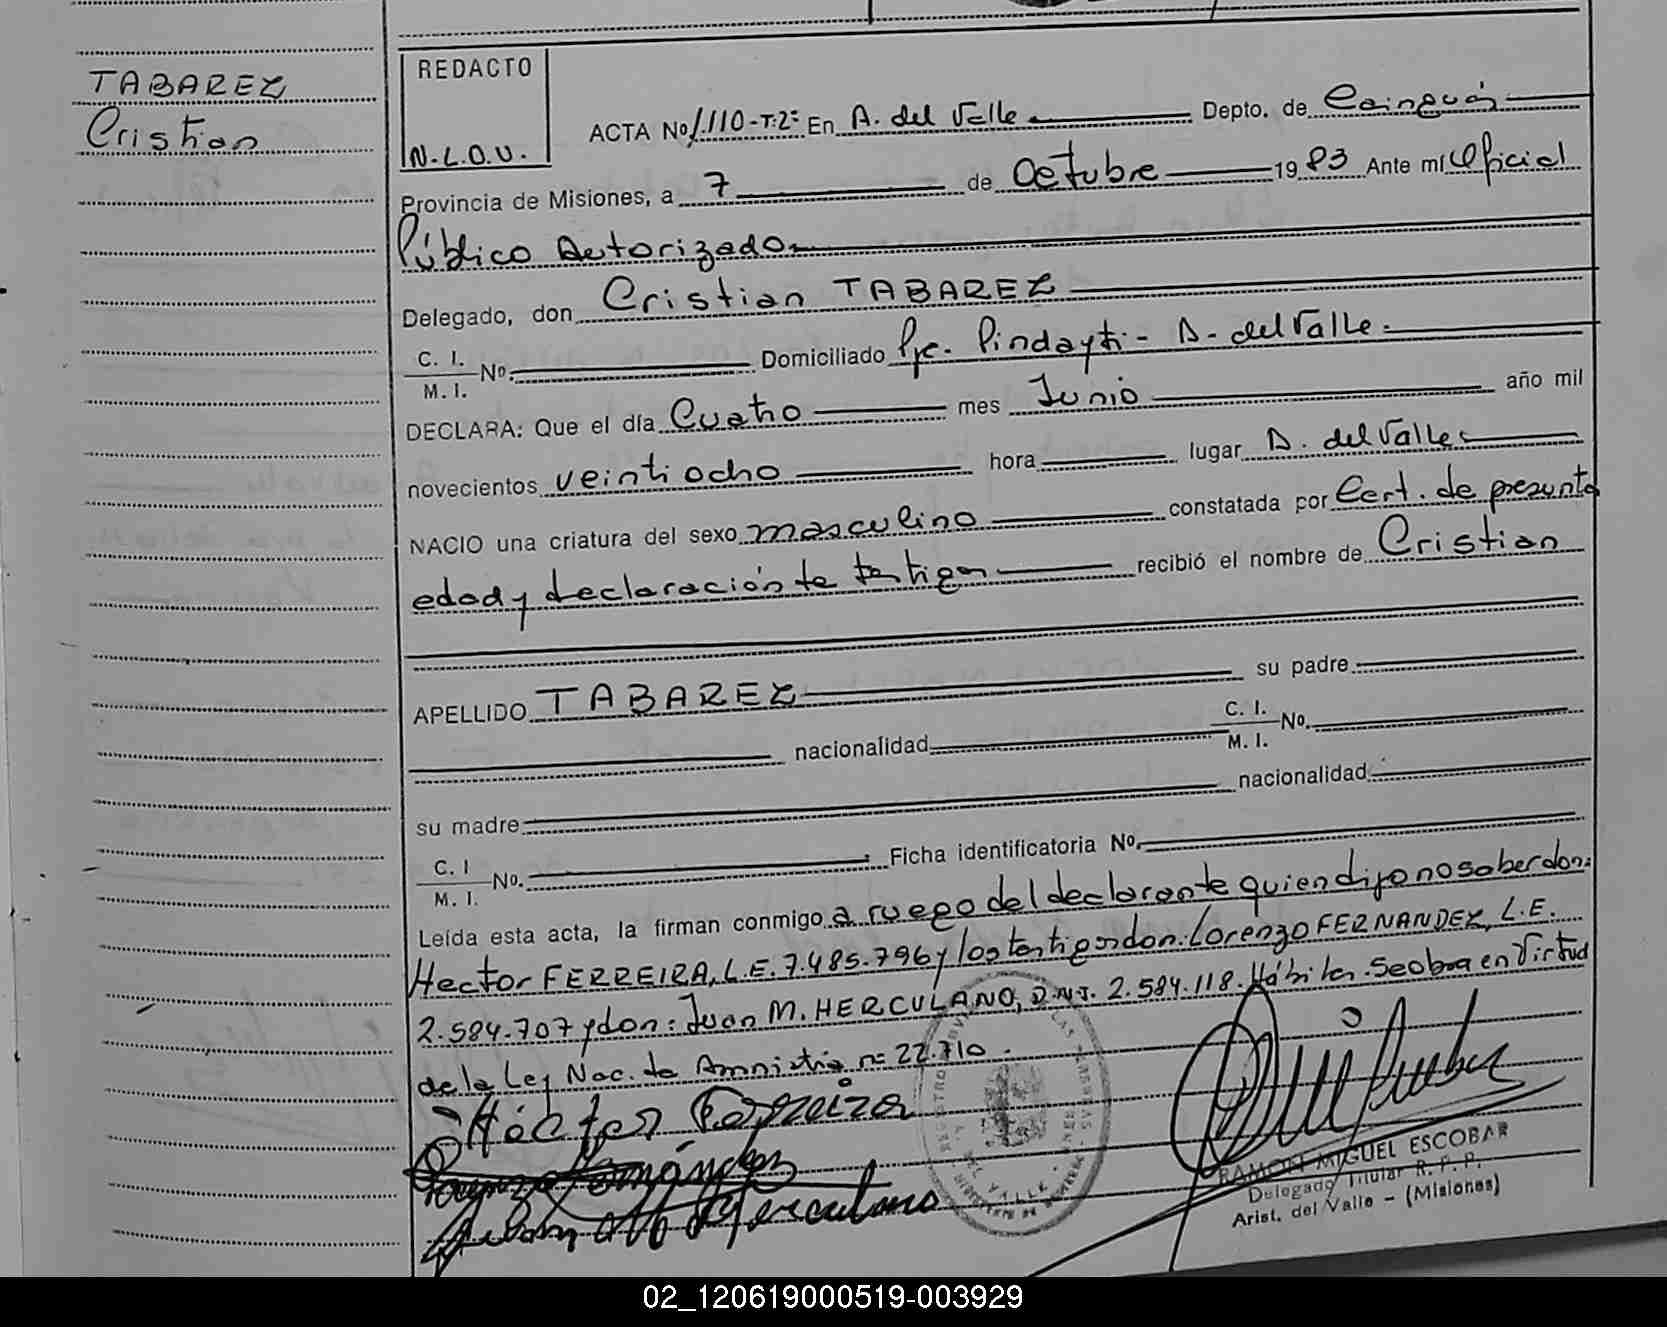 TABAREZ
Cristian
REDACTO
N.L.O.V.
ACTA No 1.110-T:2º En A. del Valle Depto. de Cainguás
Provincia de Misiones, a 7 de Octubre 1983 Ante mí Oficial
Público Autorizado
Delegado, don Cristian TABAREZ
C. I.
M. I. No. Domiciliado Pje. Pindayti - A. del Valle.
DECLARA: Que el día Cuatro mes Junio año mil
novecientos veintiocho hora lugar A. del Valle
NACIO una criatura del sexo masculino constatada por Cert. de presunta
edad y declaración de testigos recibió el nombre de Cristian
APELLIDO TABAREZ su padre
nacionalidad C. I.
M. I. No.
su madre nacionalidad
C. I
M. I. No. Ficha identificatoria No.
Leída esta acta, la firman conmigo a ruego del declarante quien dijo no saber don:
Hector FERREIRA, L.E. 7.485.796 y los testigos don: Lorenzo FERNANDEZ, L.E.
2.584.707 y don: Juan M. HERCULANO, D.N.I. 2.584.118. Hábiles. Se obra en virtud
de la Ley Nac. de Amnistia nº 22.710.
Héctor Ferreira
Lorenzo Fernández
Juan M Herculano
RAMON MIGUEL ESCOBAR
Delegado Titular R. P. P.
Arist. del Valle - (Misiones)
02_120619000519-003929